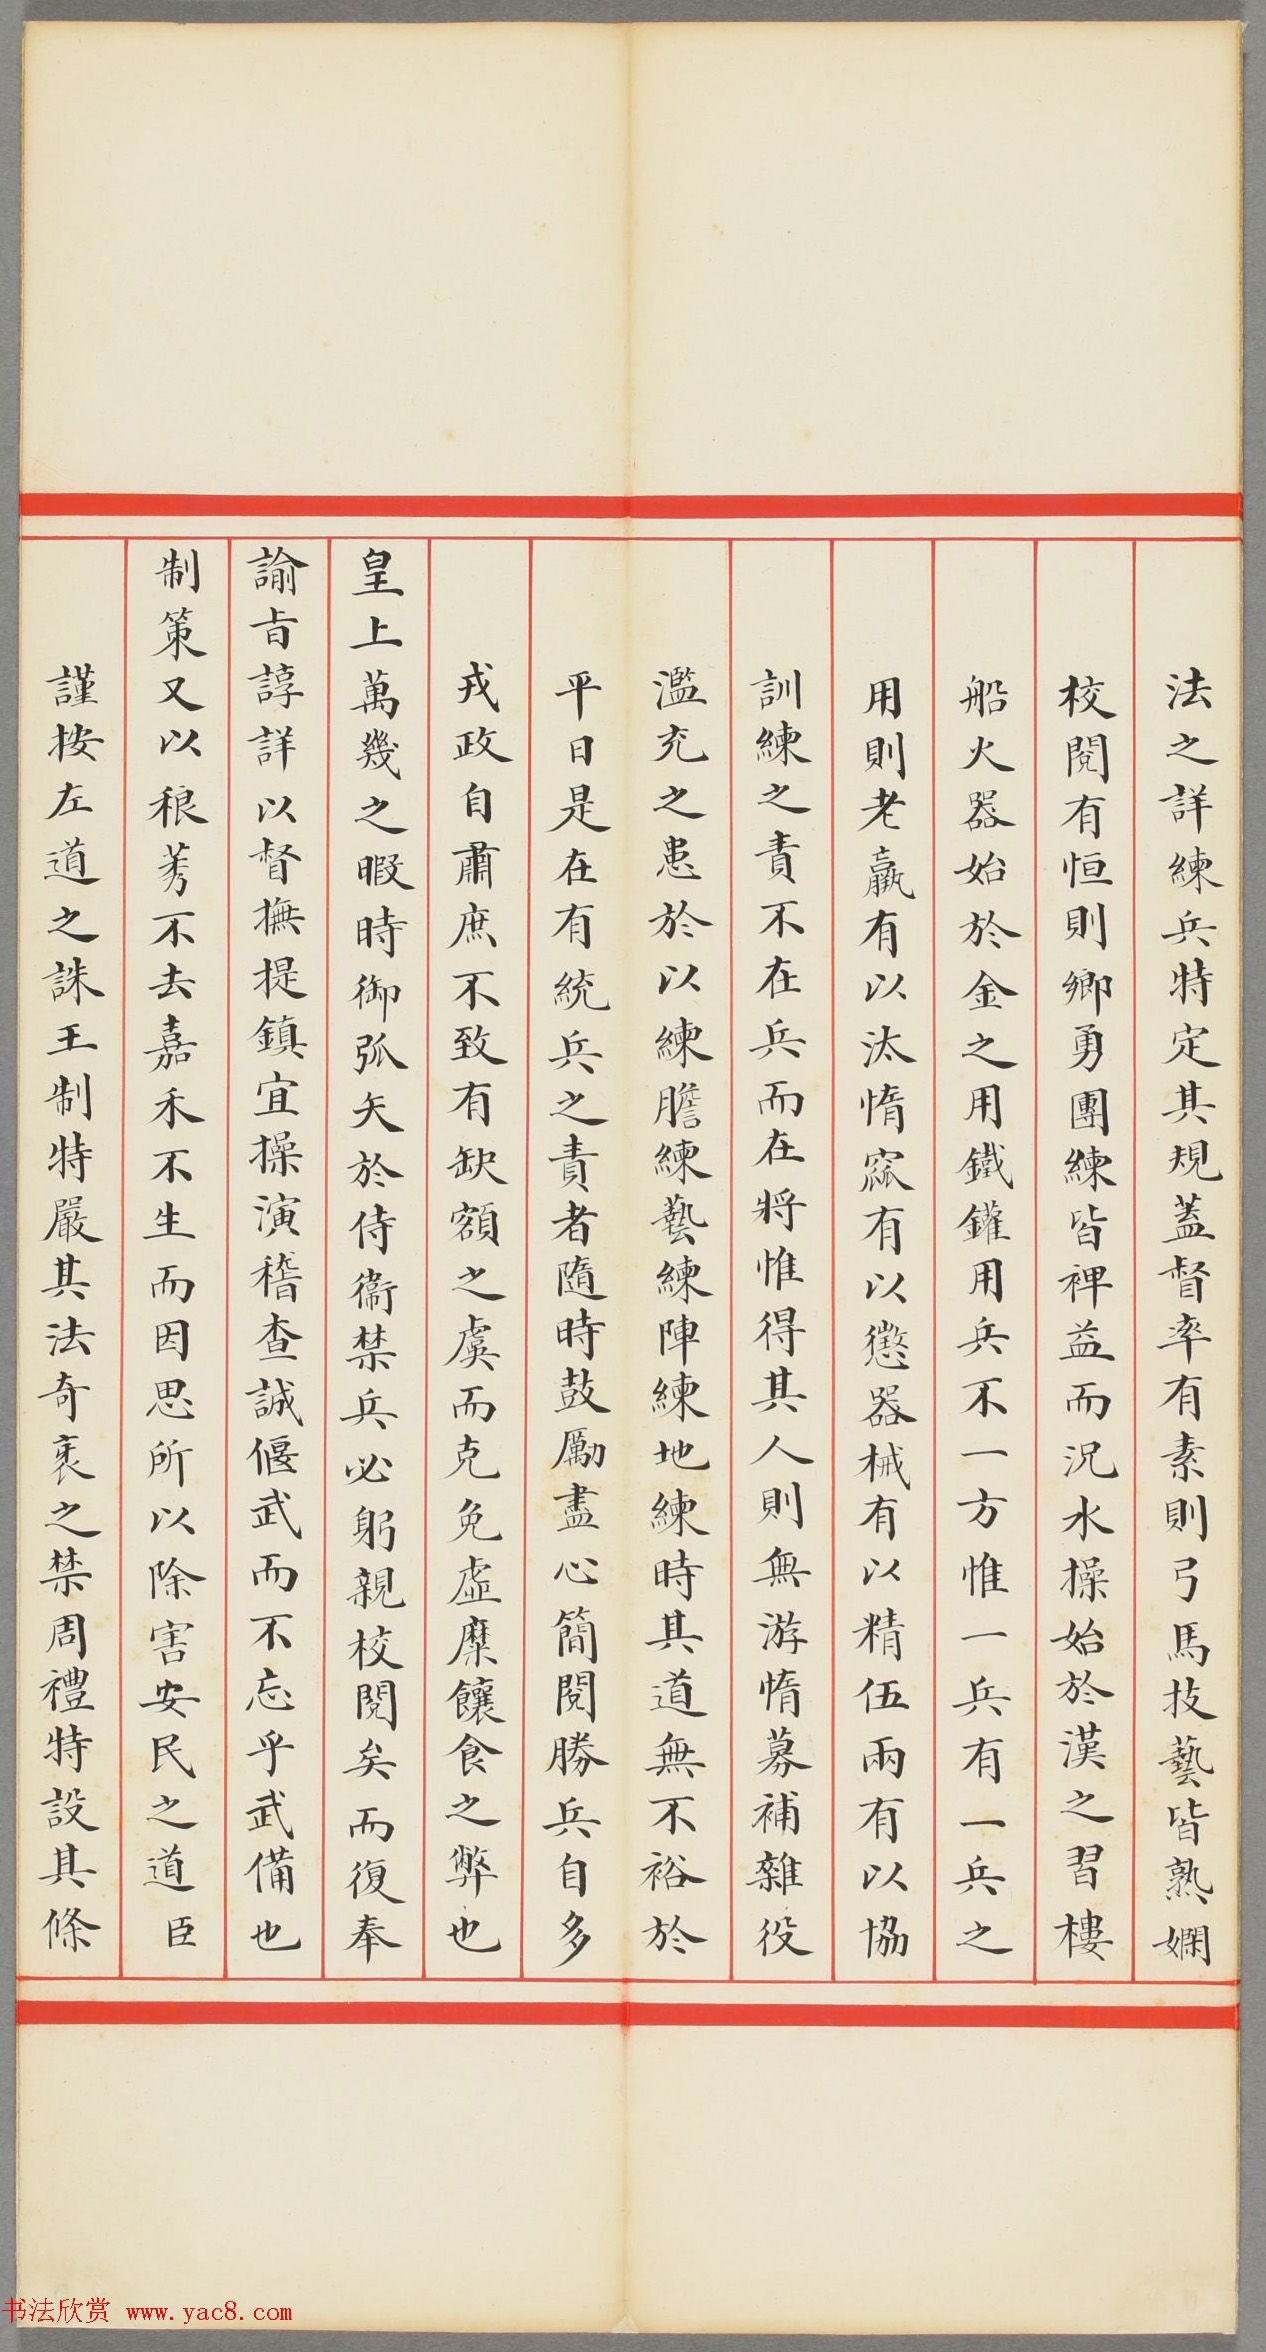 法之詳練兵特定其規蓋督率有素則弓馬技藝皆熟嫻
校閱有恒則鄉勇團練皆裨益而況水操始於漢之習樓
船火器始於金之用鐵鑵用兵不一方惟一兵有一兵之
用則老羸有以汰惰窳有以懲器械有以精伍兩有以協
訓練之責不在兵而在將惟得其人則無游惰募補雜役
濫充之患於以練膽練藝練陣練地練時其道無不裕於
平日是在有統兵之責者隨時鼓勵盡心簡閱勝兵自多
戎政自肅庶不致有缺額之虞而克免虛糜饟食之弊也
皇上萬幾之暇時御弧矢於侍衞禁兵必躬親校閱矣而復奉
諭旨諄詳以督撫提鎮宜操演稽查誠偃武而不忘乎武備也
制策又以稂莠不去嘉禾不生而因思所以除害安民之道臣
謹按左道之誅王制特嚴其法奇衺之禁周禮特設其條
书法欣赏 www.yac8.com